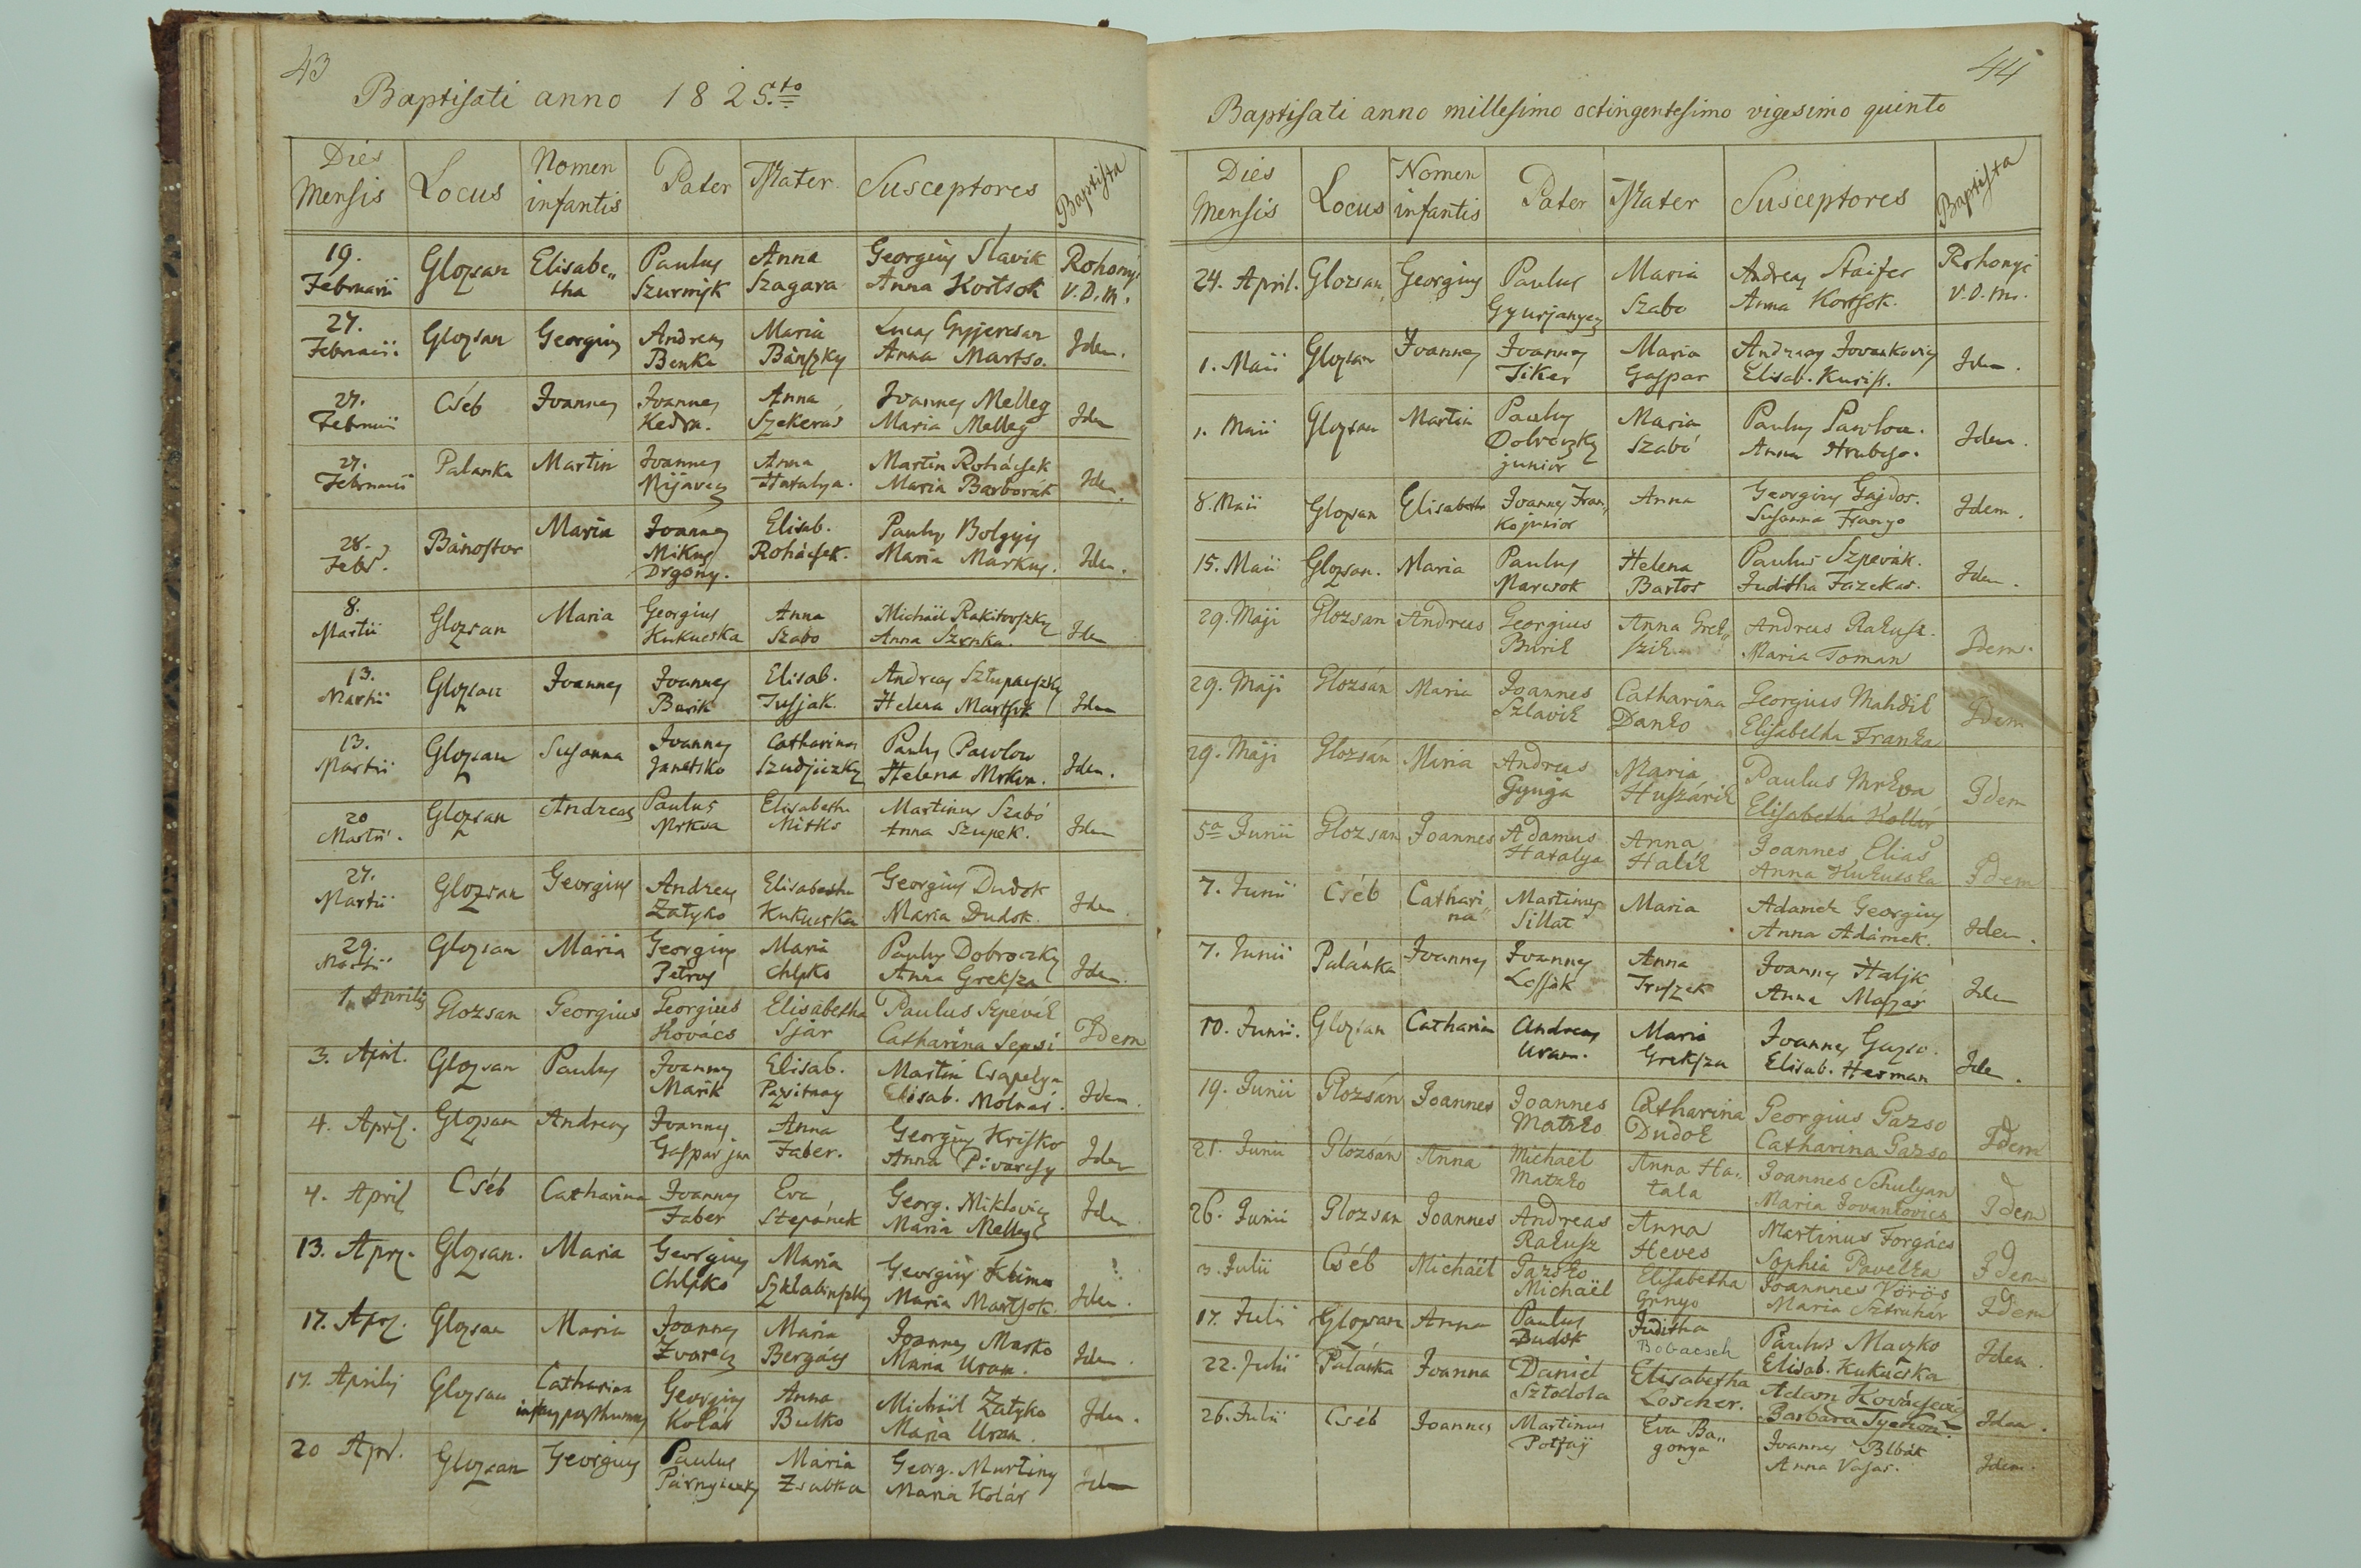 43
Baptisati anno 1825.to
Dies Mensis Locus Nomen infantis Pater Mater Susceptores Baptista
19. Februarii Glozsan Elisabe„tha Paulus Szurnyk Anna Szagara Georgius Slavik Anna Kortsok Rohonyi V.D.M.
27. Februarii Glozsan Georgius Andreas Benka Maria Bánszky Lucas Anna Martso. Idem.
27. Februarii Cséb Joannes Joannes Kedra. Anna Szekerás Joannes Melleg Maria Melleg Idem
27. Februarii Palanka Martin Joannes Mijavecz Anna Hatalya. Martin Rohácsek Maria Barborák Idem.
28. Febr. Bánostor Maria Joannes Mikus Drgony. Elisab. Rohácsek. Paulus Bolgyis Maria Markus. Idem.
8. Martii Glozsan Maria Georgius Kukucska Anna Szabo Michaël Rakitovszky Anna Szenka. Idem
13. Martii Glozsan Joannes Joannes Burik Elisab. Tusjak. Andreas Helena Martsok Idem
13. Martii Glozsan Susanna Joannes Janetsko Catharina Paulus Pawlow Helena Mrkva. Idem.
20 Martii. Glozsan Andreas Paulus Mrkva Elisabetha Mitko Martinus Szabó Anna Szupek. Idem
27. Martii Glozsan Georgius Andreas Zatyko Elisabetha Kukucska Georgius Dudok Maria Dudok. Idem.
29. Martii Glozsan Maria Georgius Petrus Maria Chlpko Paulus Dobroczky Anna Greksza Idem.
1. Aprilis Glozsan Georgius Georgius Kovács Elisabetha Sjár Paulus Szpevák Catharina Sepsi Idem
3. April. Glozsan Paulus Joannes Marik Elisab. Pazsitnay Martin Csapelya Elisab. Molnár. Idem.
4. April. Glozsan Andreas Joannes Gaspar jun Anna Faber. Georgius Kristko Anna Pivarcsy Idem
4. April Cséb Catharina Joannes Faber Eva Stepánek Georg. Miklovicz Maria Melleg Idem.
13. Apr. Glozsan. Maria Georgius Chlpko Maria Szklabinszky Georgius Klima Maria Martsok. Idem.
17. Apr. Glozsan Maria Joannes Zvarács Maria Bergács Joannes Marko Maria Uram. Idem.
17. Aprilis Glozsan Catharina infans posthumus Georgius Kolár Anna Bulko Michaël Zatyko Maria Uram. Idem.
20 Apr. Glozsan Georgius Paulus Párnyiczky Maria Zsabka Georg. Martiny Maria Kolár Idem
44
Baptisati anno millesimo octingentesimo vigesimo quinto
Dies Mensis Locus Nomen infantis Pater Mater Susceptores Baptista
24. April. Glozsan Georgius Paulus Gyurjanyecz Maria Szabo Andreas Staifer Anna Kortsok. Rohonyi V.D.M.
1. Maii Glozsan Joannes Joannes Tiker Maria Gaspar Andreas Jovankovics Elisab. Kuriss. Idem.
1. Maii Glozsan Martin Paulus Dobroczky junior Maria Szabó Paulus Pawlow. Anna Hrubcso. Idem.
8. Maii Glozsan Elisabeth Joannes Fran„ko junior Anna Georgius Gajdos. Susanna Franyo Idem.
15. Maii Glozsan. Maria Paulus Marcsok Helena Bartos Paulus Szpevák. Juditha Fazekas. Idem.
29. Maji Glozsan Andreas Georgius Burik Anna Grek„szik Andreas Rakusz. Maria Toman Idem.
29. Maji Glozsán Maria Joannes Szlavik Catharina Danko Georgius Mahdik Elisabetha Franka Idem
29. Maji Glozsán Maria Andreas Gyuga Maria Huszárik Paulus Mrkva Elisabetha Kollár Idem
5a Junii Glozsan Joannes Adamus Hatalya Anna Halik Joannes Elias Anna Kukutska Idem
7. Junii Cséb Cathari„na Martinus Sillat Maria Adamek Georgius Anna Adámek. Idem.
7. Junii Palánka Joannes Joannes Lossák Anna Truszek Joannes Haljk Anna Maszár Idem
10. Junii. Glozsan Catharin Andreas Uram. Maria Greksza Joannes Gazso. Elisab. Herman Idem.
19. Junii Glozsán Joannes Joannes Matzko Catharina Dudok Georgius Gazso Catharina Gazso Idem
21. Junii Glozsán Anna Michaël Matzko Anna Ha„tala Joannes Schulyan Maria Jovankovics Idem
26. Junii Glozsan Joannes Andreas Rakusz Anna Heves Martinus Forgács Sophia Pavelka Idem
3. Julii Cséb Michaël Gazsko Michaël Elisabetha Grnyo Joannnes Vörös Maria Sztruhár Idem
17. Julii Glozsan Anna Paulus Dudok Juditha Bobacsek Paulus Maczko Elisab. Kukučska Idem.
22. Julii Palánka Joanna Daniel Sztodola Elisabetha Loscher. Adam Kovácsevics Barbara Idem.
26. Julii Cséb Joannes Martinus Potfaij Eva Ba„gonya Joannes Blbák Anna Vasas. Idem.